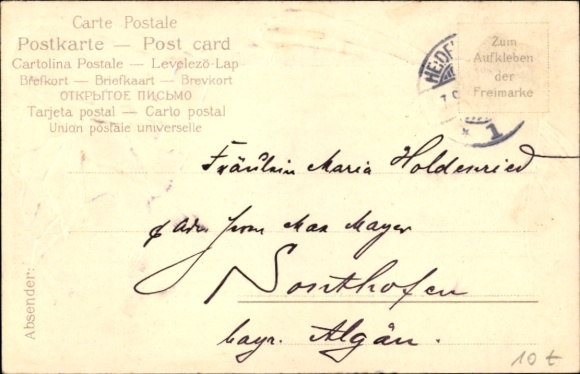 Carte Postale
Postkarte — Post card
Cartolina Postale — Levelező-Lap
Brefkort — Briefkaart — Brevkort
ОТКРЫТОЕ ПИСЬМО
Tarjeta postal — Carto postal
Union postale universelle
Zum
Aufkleben
der
Freimarke
HEID
1
Fräulein Maria Holdenried
p Adr. Herrn Max Mayer
Sonthofen
bayr. Algäu.
Absender:
10 t